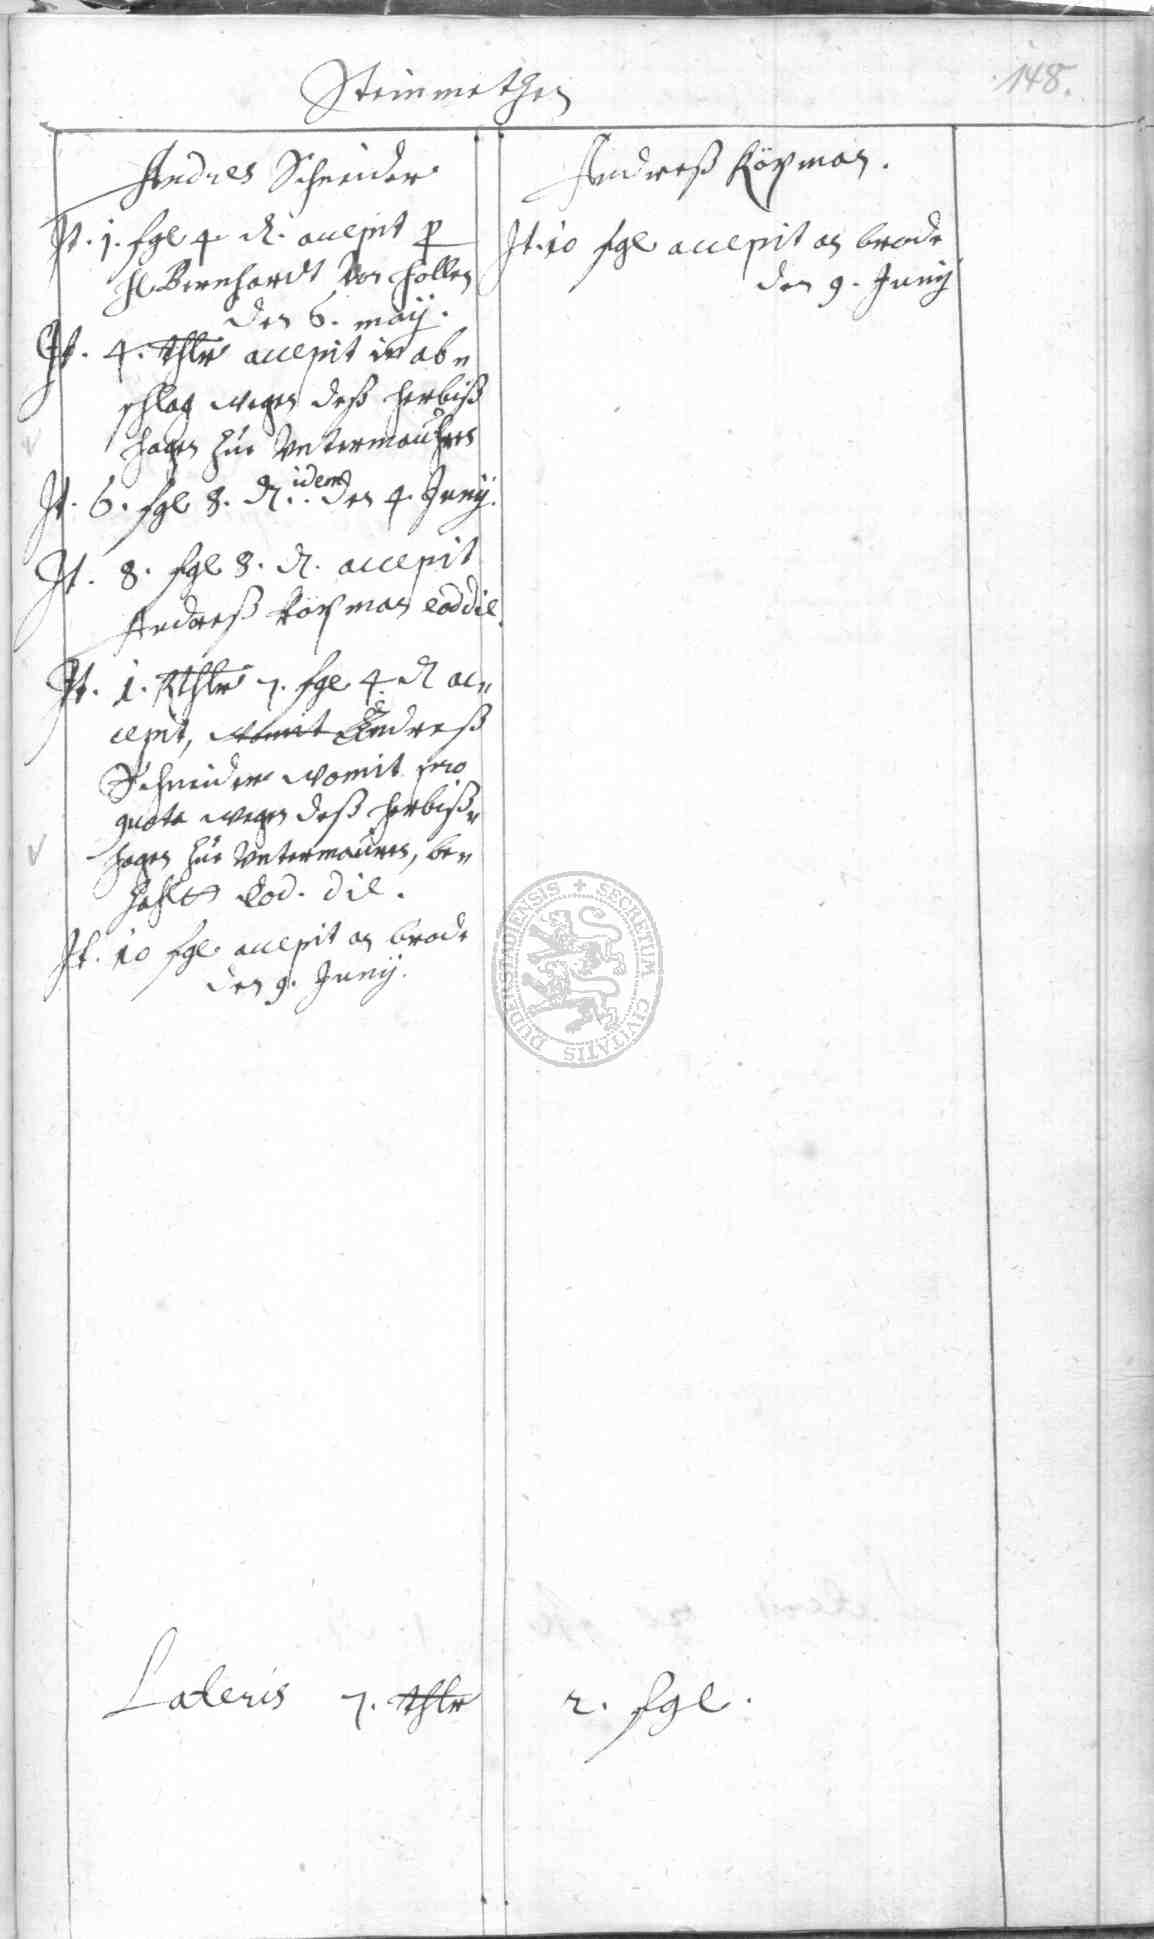 148.
Steinmetzen
Andres Schneider
It. 1. sgl 4 d. accepit p
H Bernhardt Von Hollen
den 6. may.
It. 4. thlr accepit in ab=
schlag wegen deß herbiß
hagen zue Untermauhren
It. 6. sgl 8. d. idem den 4. Junij.
It. 8. sgl 8. d. accepit
Andreß Köpman eod die.
It. 1. Rthlr 7. sgl 4 d ac=
cepit, womit Andreß
Schneider womit pro
quota wegen deß herbiß=
hagen zue Untermauren, be=
zahlt Eod. die.
It. 10 sgl accepit an brode
den 9. Junij.
Andreß Köpman.
It. 10 sgl accepit an brode
den 9. Junij
Lateris 7. thlr 2. sgl.
DUDERSTADIENSIS + SECRETUM CIVITATIS